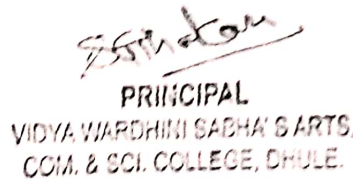 PRINCIPAL
VIDYA WARDHINI SABHA'S ARTS,
COM. & SCI. COLLEGE, DHULE.